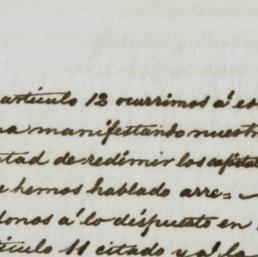 artículo 12 ocurrimos á es
na manifestando nuestr
ntad de redimir los capital
e hemos hablado arre=
donos á lo dispuesto en
tículo 11 citado y á la